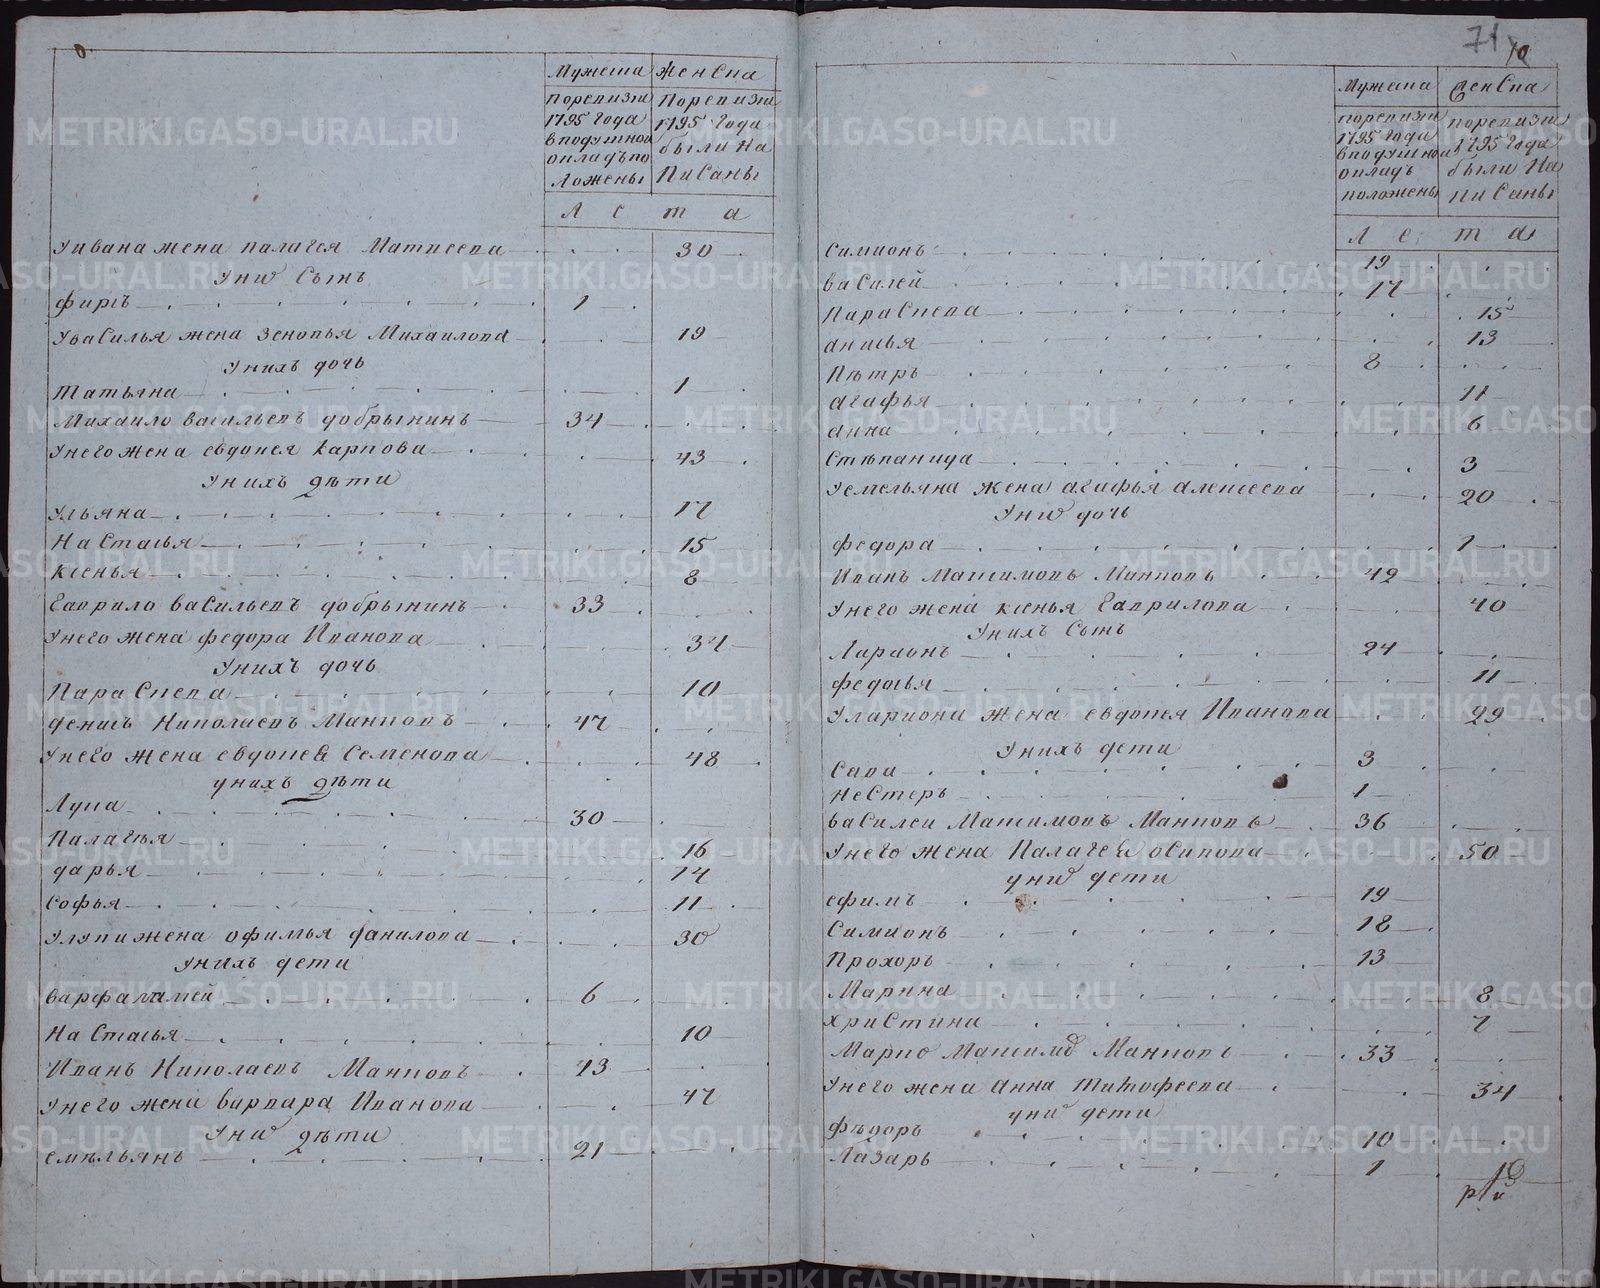 Мужеска женска
поревизи 1795 года вподушной окладъ положены
Поревизи 1795 года были написаны
Лета
Уивана жена палагея Матвеева 30
Уних Сынъ
фирсъ 1
Увасилья жена Зеновья Михаилова 19
Унихъ дочь
Татьяна 1
Михаило васильевъ добрынинъ 34
Унего жена евдокея карпова 43
Унихъ дѣти
Ульяна 17
Настасья 15
ксенья 8
Гаврило васильевъ добрынинъ 33
Унего жена федора Иванова 37
Унихъ дочь
Параскева 10
денисъ Николаевъ Манковъ 47
Унего жена евдокея Семенова 48
унихъ дѣти
Лупа 30
Палагея 16
дарья 14
Софья 11
Улупи жена офимья данилова 30
унихъ дети
варфаламей 6
Настасья 10
Иванъ Николаевъ Манковъ 43
Унего жена варвара Иванова 47
Уних дѣти
емѣльянъ 21
71
Мужеска женска
поревизи 1795 года вподушной окладъ положены
поревизи 1795 года были написаны
Лета
Симионъ 19
василей 17
Параскева 15
анисья 13
Пѣтръ 8
агафья 11
анна 6
Стѣпанида 3
Уемельяна жена агафья алексеева 20
Уних дочь
федора 1
Иванъ Максимовъ Манковъ 49
Унего жена ксенья Гаврилова 40
Унихъ Сынъ
Лараонъ 24
федосья 11
Улариона жена евдокея Иванова 29
Унихъ дети
Сава 3
Нестеръ 1
василеи Максимовъ Манковъ 36
Унего жена Палагея осипова 50
уних дети
ефимъ 19
Симионъ 18
Прохоръ 13
Марина 8
христина 7
Марко Максимо Манковъ 33
Унего жена анна Тимофеева 34
уних дети
фѣдоръ 10
Лазарь 1
METRIKI.GASO-URAL.RU